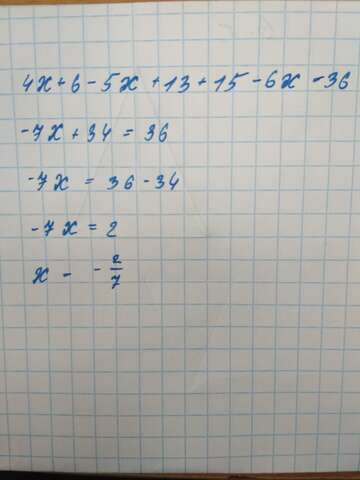 4x+6-5x+13+15-6x-36
-7x+34=36
-7x=36-34
-7x=2
x - -2/7